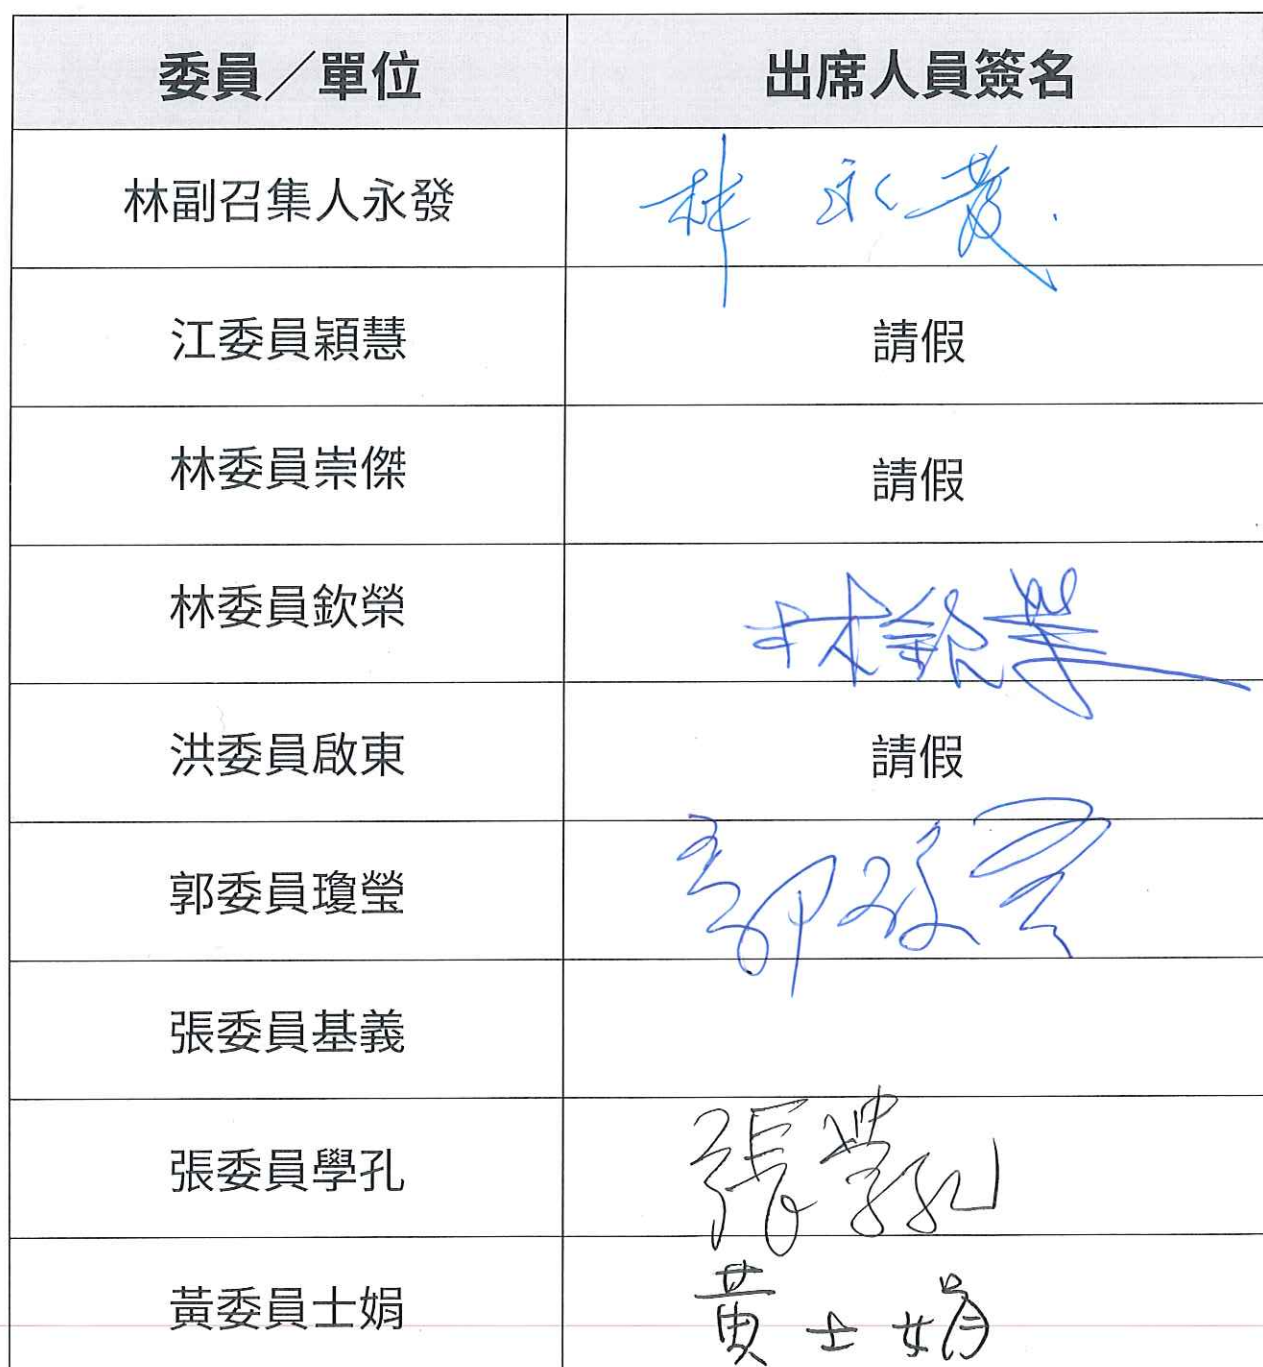 委員／單位 出席人員簽名
林副召集人永發 林永發
江委員穎慧 請假
林委員崇傑 請假
林委員欽榮 林欽榮
洪委員啟東 請假
郭委員瓊瑩 郭瓊瑩
張委員基義
張委員學孔 張學孔
黃委員士娟 黃士娟